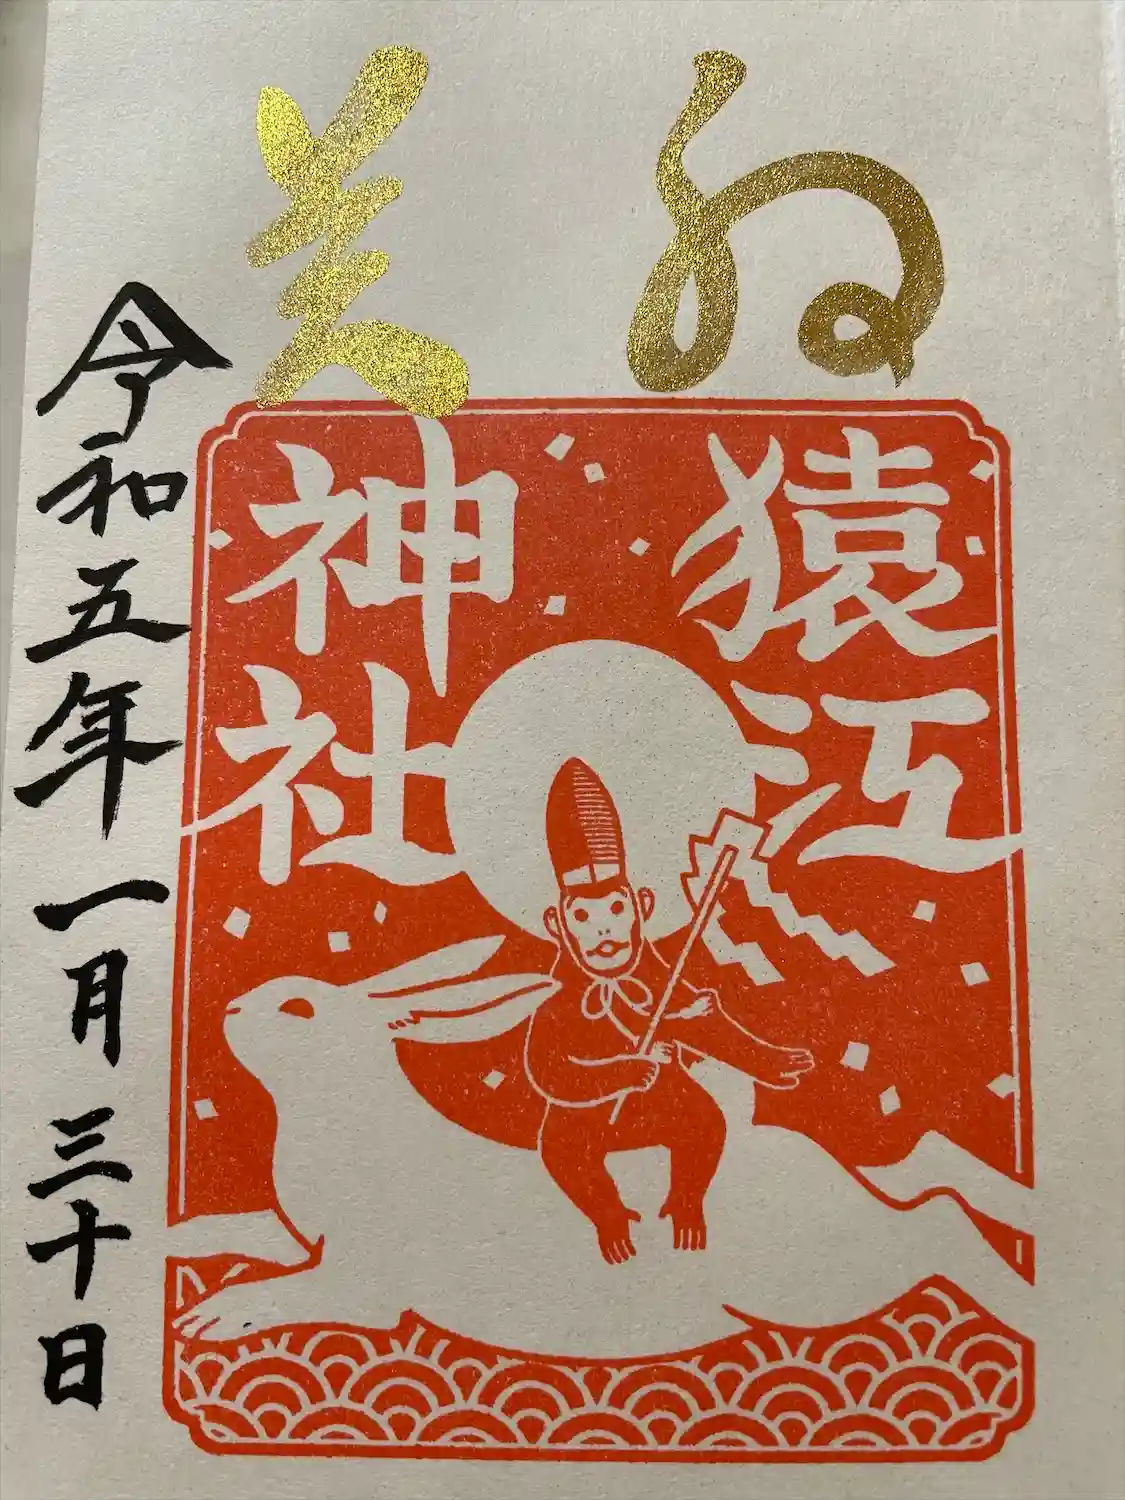 猿江
神社
令和五年一月三十日